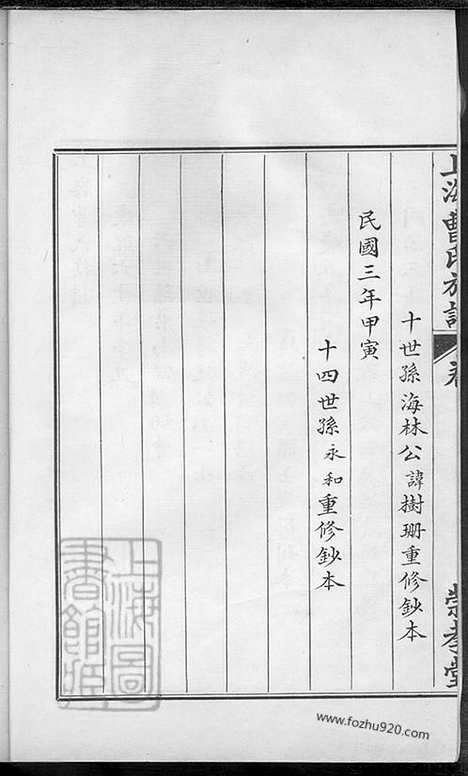 上海曹氏族譜
卷
崇孝堂
十世孫海林公諱樹珊重修鈔本
民國三年甲寅
十四世孫永和重修鈔本
上海圖
書館藏
www.fozhu920.com